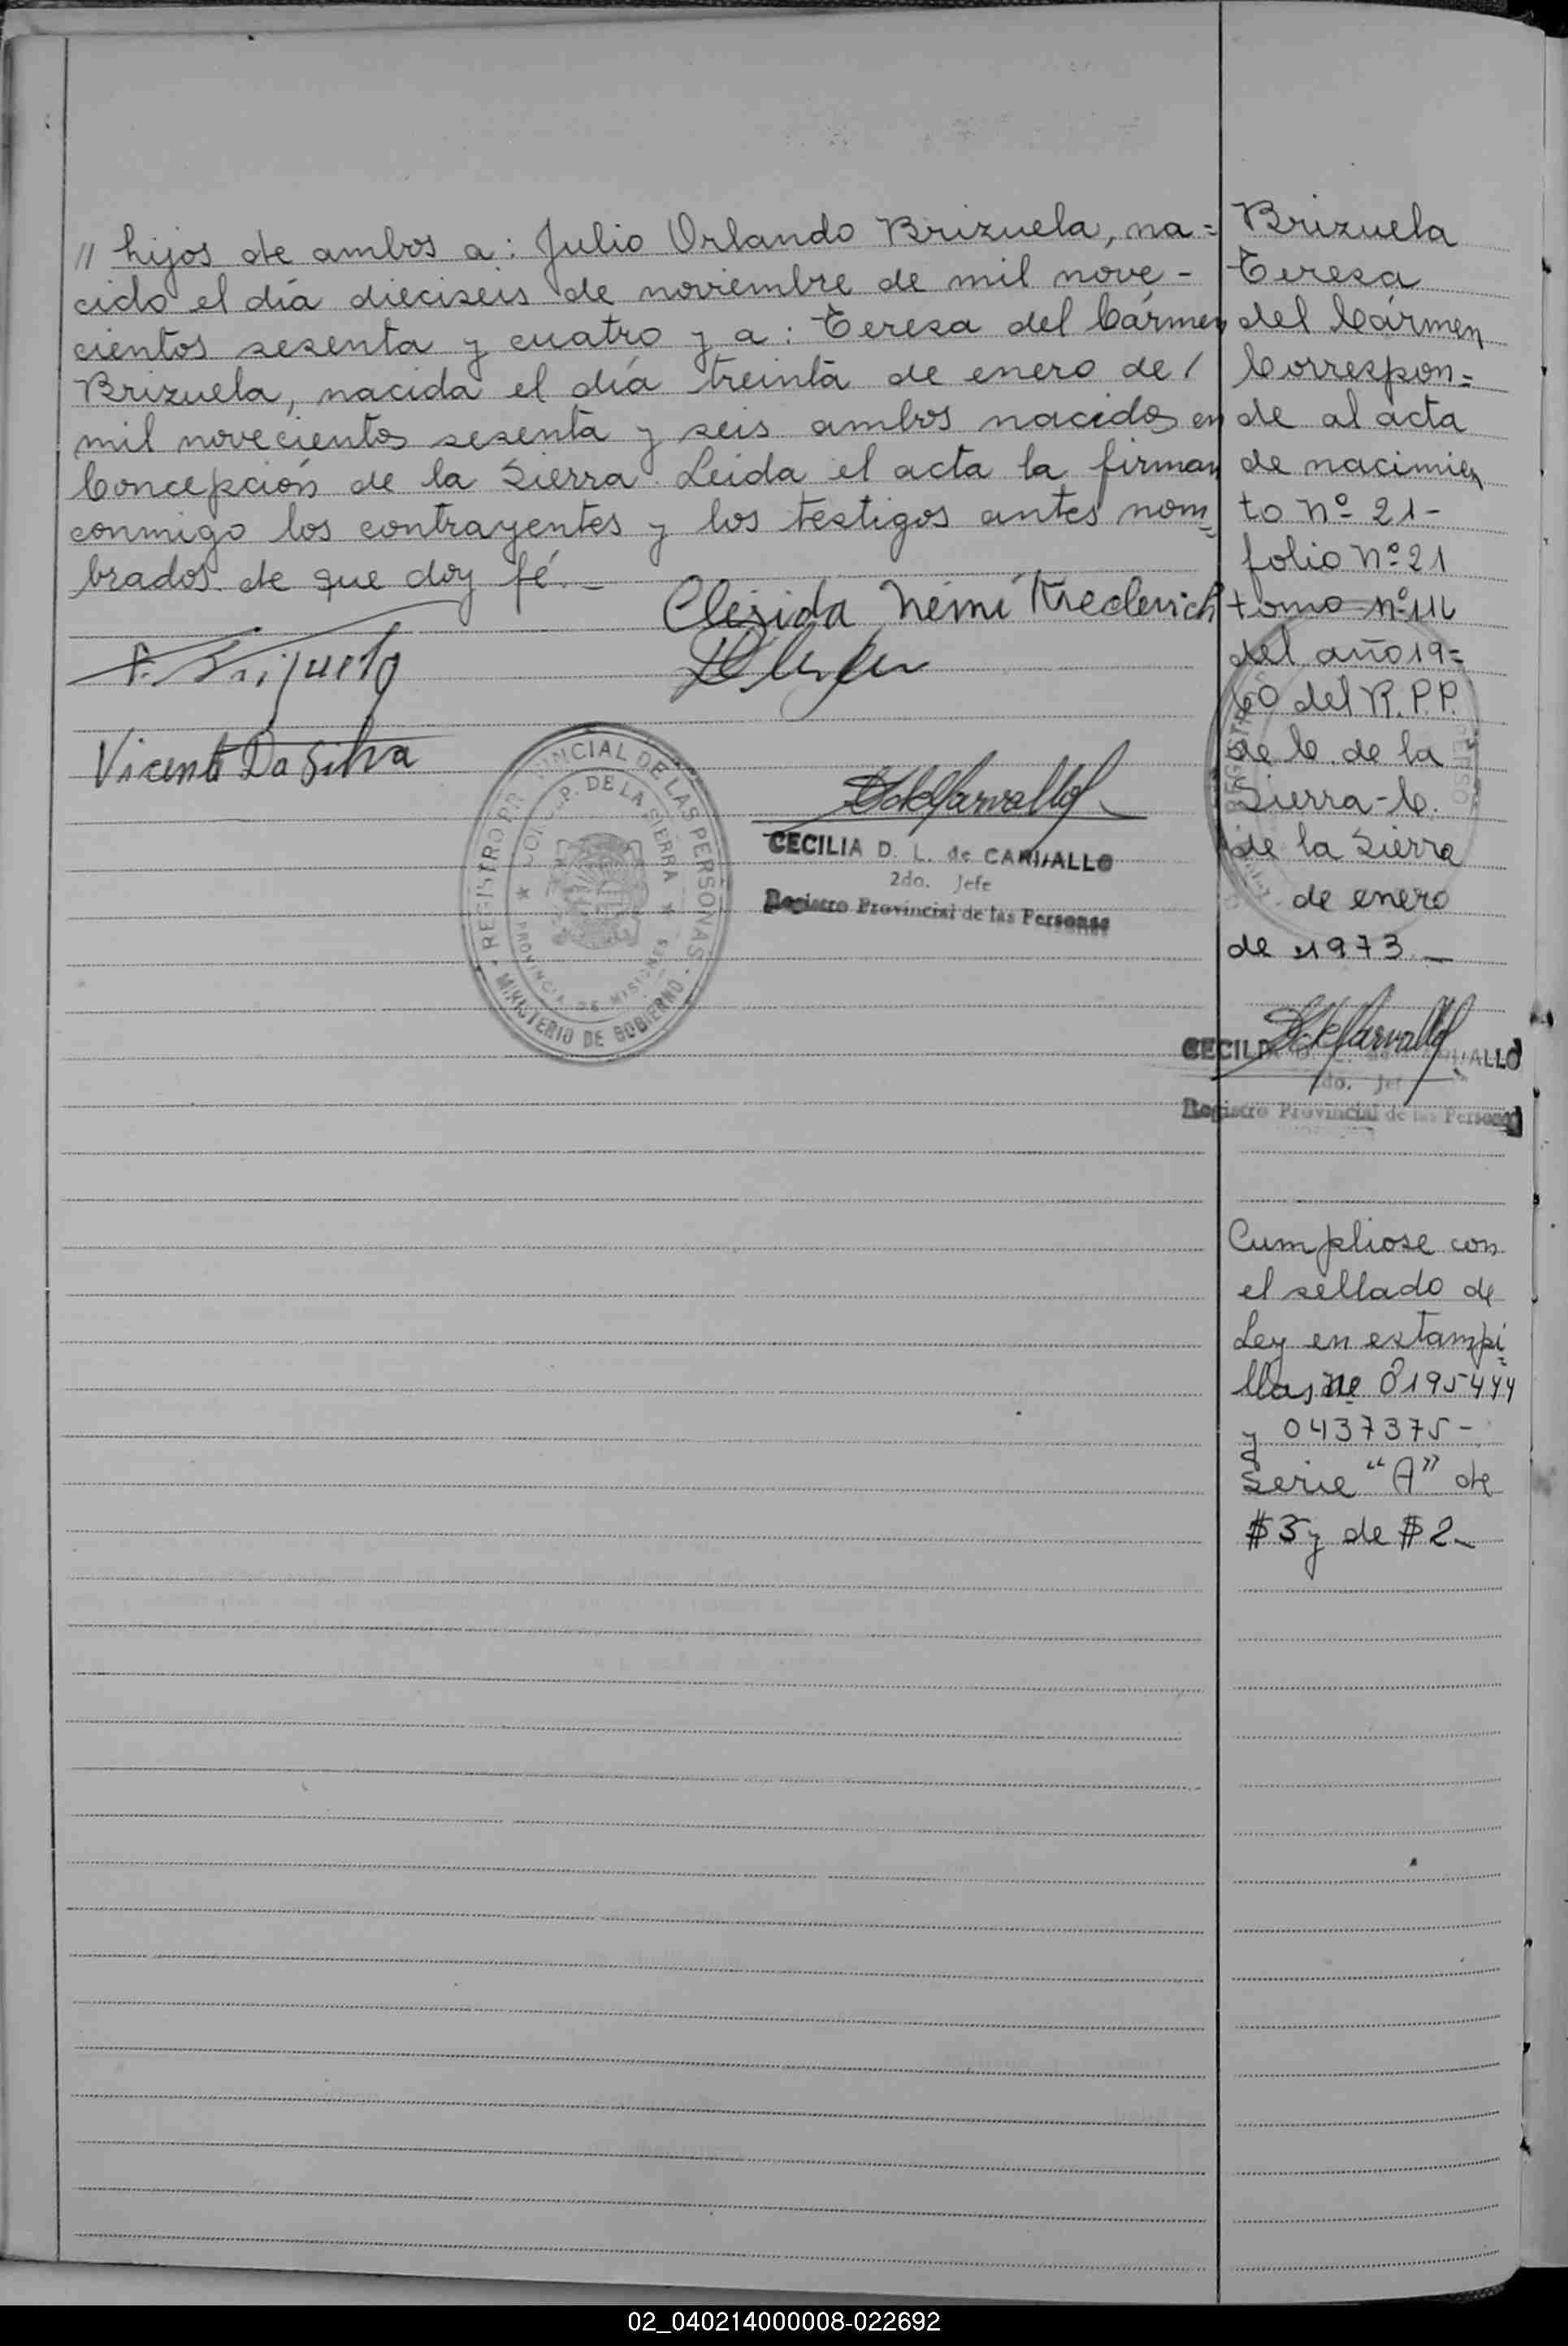 // hijos de ambos a: Julio Orlando Brizuela, na=
cido el día dieciseis de noviembre de mil nove-
cientos sesenta y cuatro y a: Teresa del Cármen
Brizuela, nacida el día treinta de enero de /
mil novecientos sesenta y seis ambos nacidos en
Concepción de la Sierra. Leida el acta la firman
conmigo los contrayentes y los testigos antes nom=
brados de que doy fé.-
Clesida Nemi Krederich
Vicente Da Silva
REGISTRO PROVINCIAL DE LAS PERSONAS
MINISTERIO DE GOBIERNO
CONCEP. DE LA SIERRA
PROVINCIA DE MISIONES
CECILIA D. L. de CARVALLO
2do. Jefe
Registro Provincial de las Personas
Brizuela
Teresa
del Cármen
Correspon=
de al acta
de nacimien
to nº 21-
folio nº 21
tomo nº
del año 19=
del R.P.P.
de C. de la
Sierra-C.
de la Sierra
de enero
de 1973.-
CECILIA D. L. de CARVALLO
2do. Jefe
Registro Provincial de las Personas
Cumpliose con
el sellado de
Ley en estampi=
llas nº 0195444
y 0437375-
Serie "A" de
$3 y de $2-
02_040214000008-022692